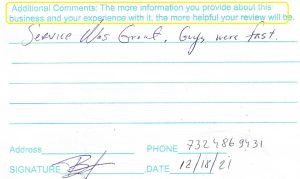 Additional Comments: The more information you provide about this
business and your experience with it, the more helpful your review will be.
Service Was Great, Guys were fast.
Address PHONE 7324869431
SIGNATURE DATE 12/18/21